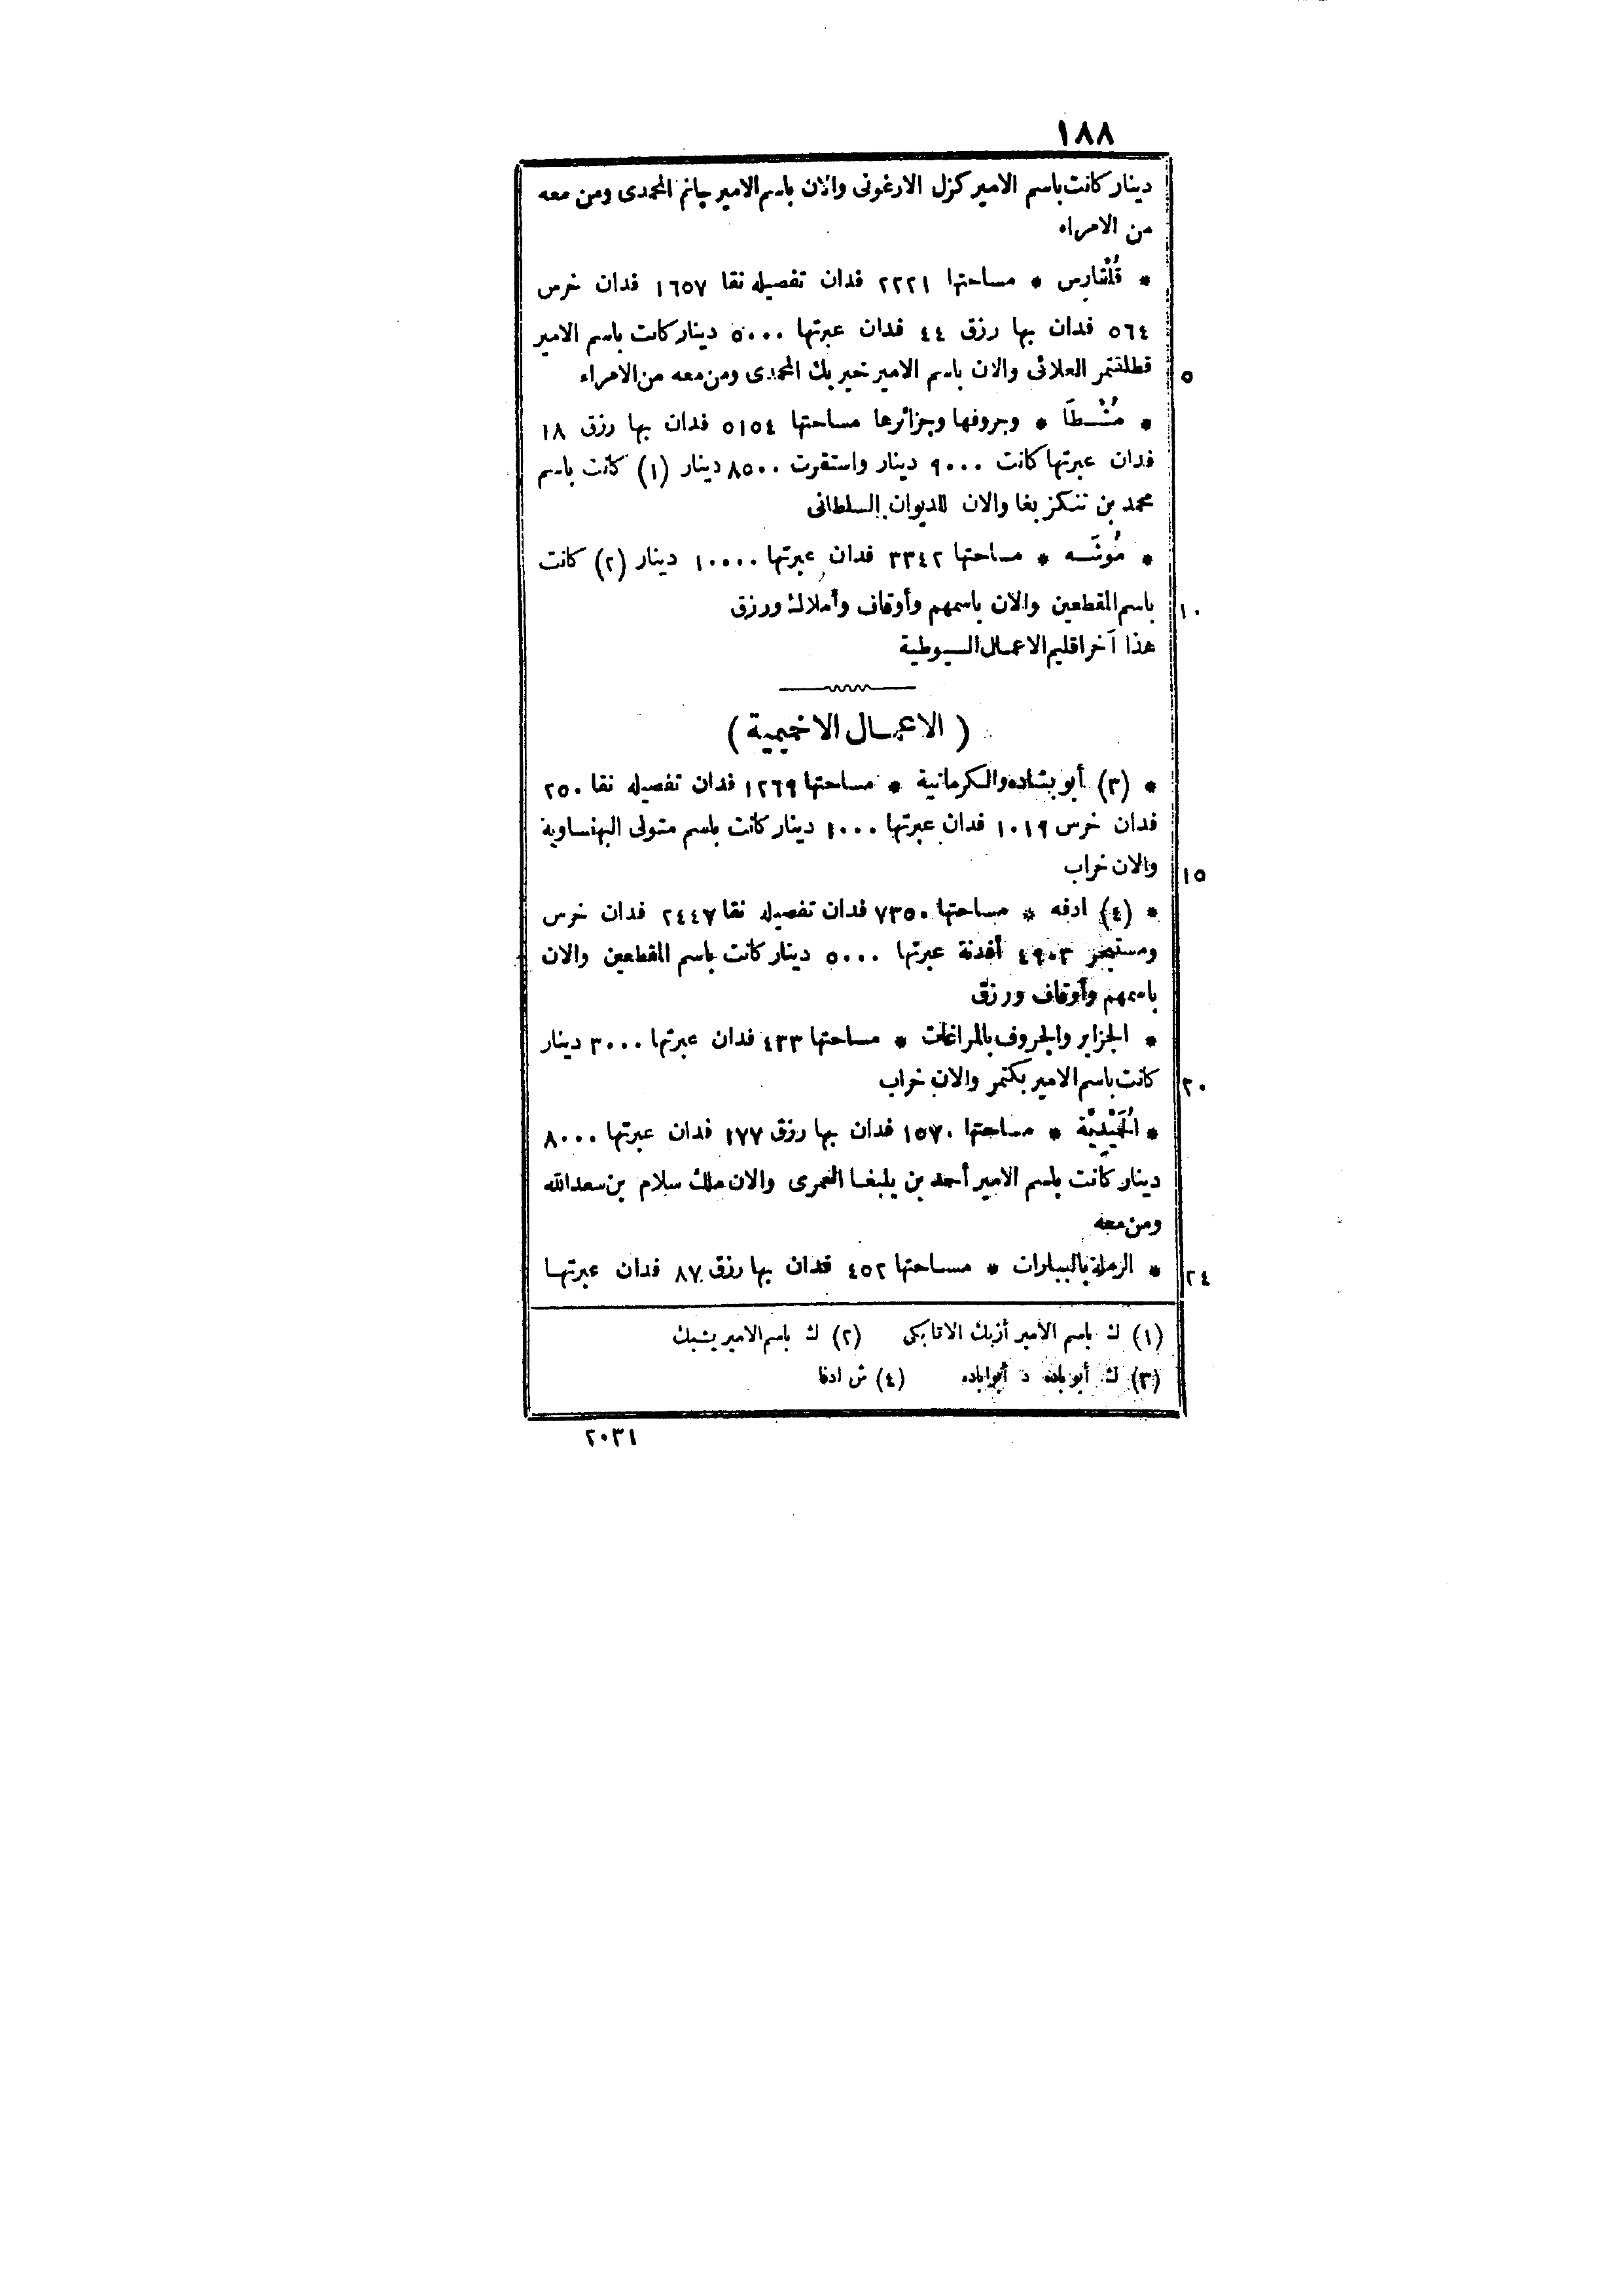 ١٨٨
دينار كانت باسم الامير كزل الارغونى والان باسم الامير جانم المحمدى ومن معه
من الامراء
* قُلْفَارِس * مساحتها ٢٢٢١ فدان تفصيله نقا ١٦٥٧ فدان خرس
٥٦٤ فدان بها رزق ٤٤ فدان عبرتها ٥٠٠٠ دينار كانت باسم الامير
قطلقتمر العلائى والان باسم الامير خير بك المحمدى ومن معه من الامراء
٥
* مُشْطَا * وجروفها وجزائرها مساحتها ٥١٥٤ فدان بها رزق ١٨
فدان عبرتها كانت ٩٠٠٠ دينار واستقرت ٨٥٠٠ دينار (١) كانت باسم
محمد بن تنكز بغا والان للديوان السلطانى
* مُوشَه * مساحتها ٣٣٤٢ فدان عبرتها ١٠٠٠٠ دينار (٢) كانت
باسم المقطعين والان باسمهم وأوقاف وأملاك ورزق
١٠
هذا آخر اقليم الاعمال السيوطية
(الاعمال الاخميمية)
* (٣) أبو بشاده والكرمانية * مساحتها ١٢٦٩ فدان تفصيله نقا ٢٥٠
فدان خرس ١٠١٩ فدان عبرتها ١٠٠٠ دينار كانت باسم متولى البهنساوية
والان خراب
١٥
* (٤) ادفه * مساحتها ٧٣٥٠ فدان تفصيله نقا ٢٤٤٧ فدان خرس
ومستبحر ٤٩٠٣ أفدنة عبرتها ٥٠٠٠ دينار كانت باسم المقطعين والان
باسمهم وأوقاف ورزق
* الجزاير والجروف بالمراغات * مساحتها ٤٣٣ فدان عبرتها ٣٠٠٠ دينار
كانت باسم الامير بكتمر والان خراب
٢٠
* مساحتها ١٥٧٠ فدان بها رزق ١٧٧ فدان عبرتها ٨٠٠٠
دينار كانت باسم الامير أحمد بن يلبغا العمرى والان ملك سلام بن سعدالله
ومن معه
* الرملة بالببارات * مساحتها ٤٥٢ فدان بها رزق ٨٧ فدان عبرتها
٢٤
(١) ك باسم الامير أزبك الاتابكى (٢) ك باسم الامير يشبك
(٣) ك أبو باده د أبو اباده (٤) ش ادفا
٢٠٣١